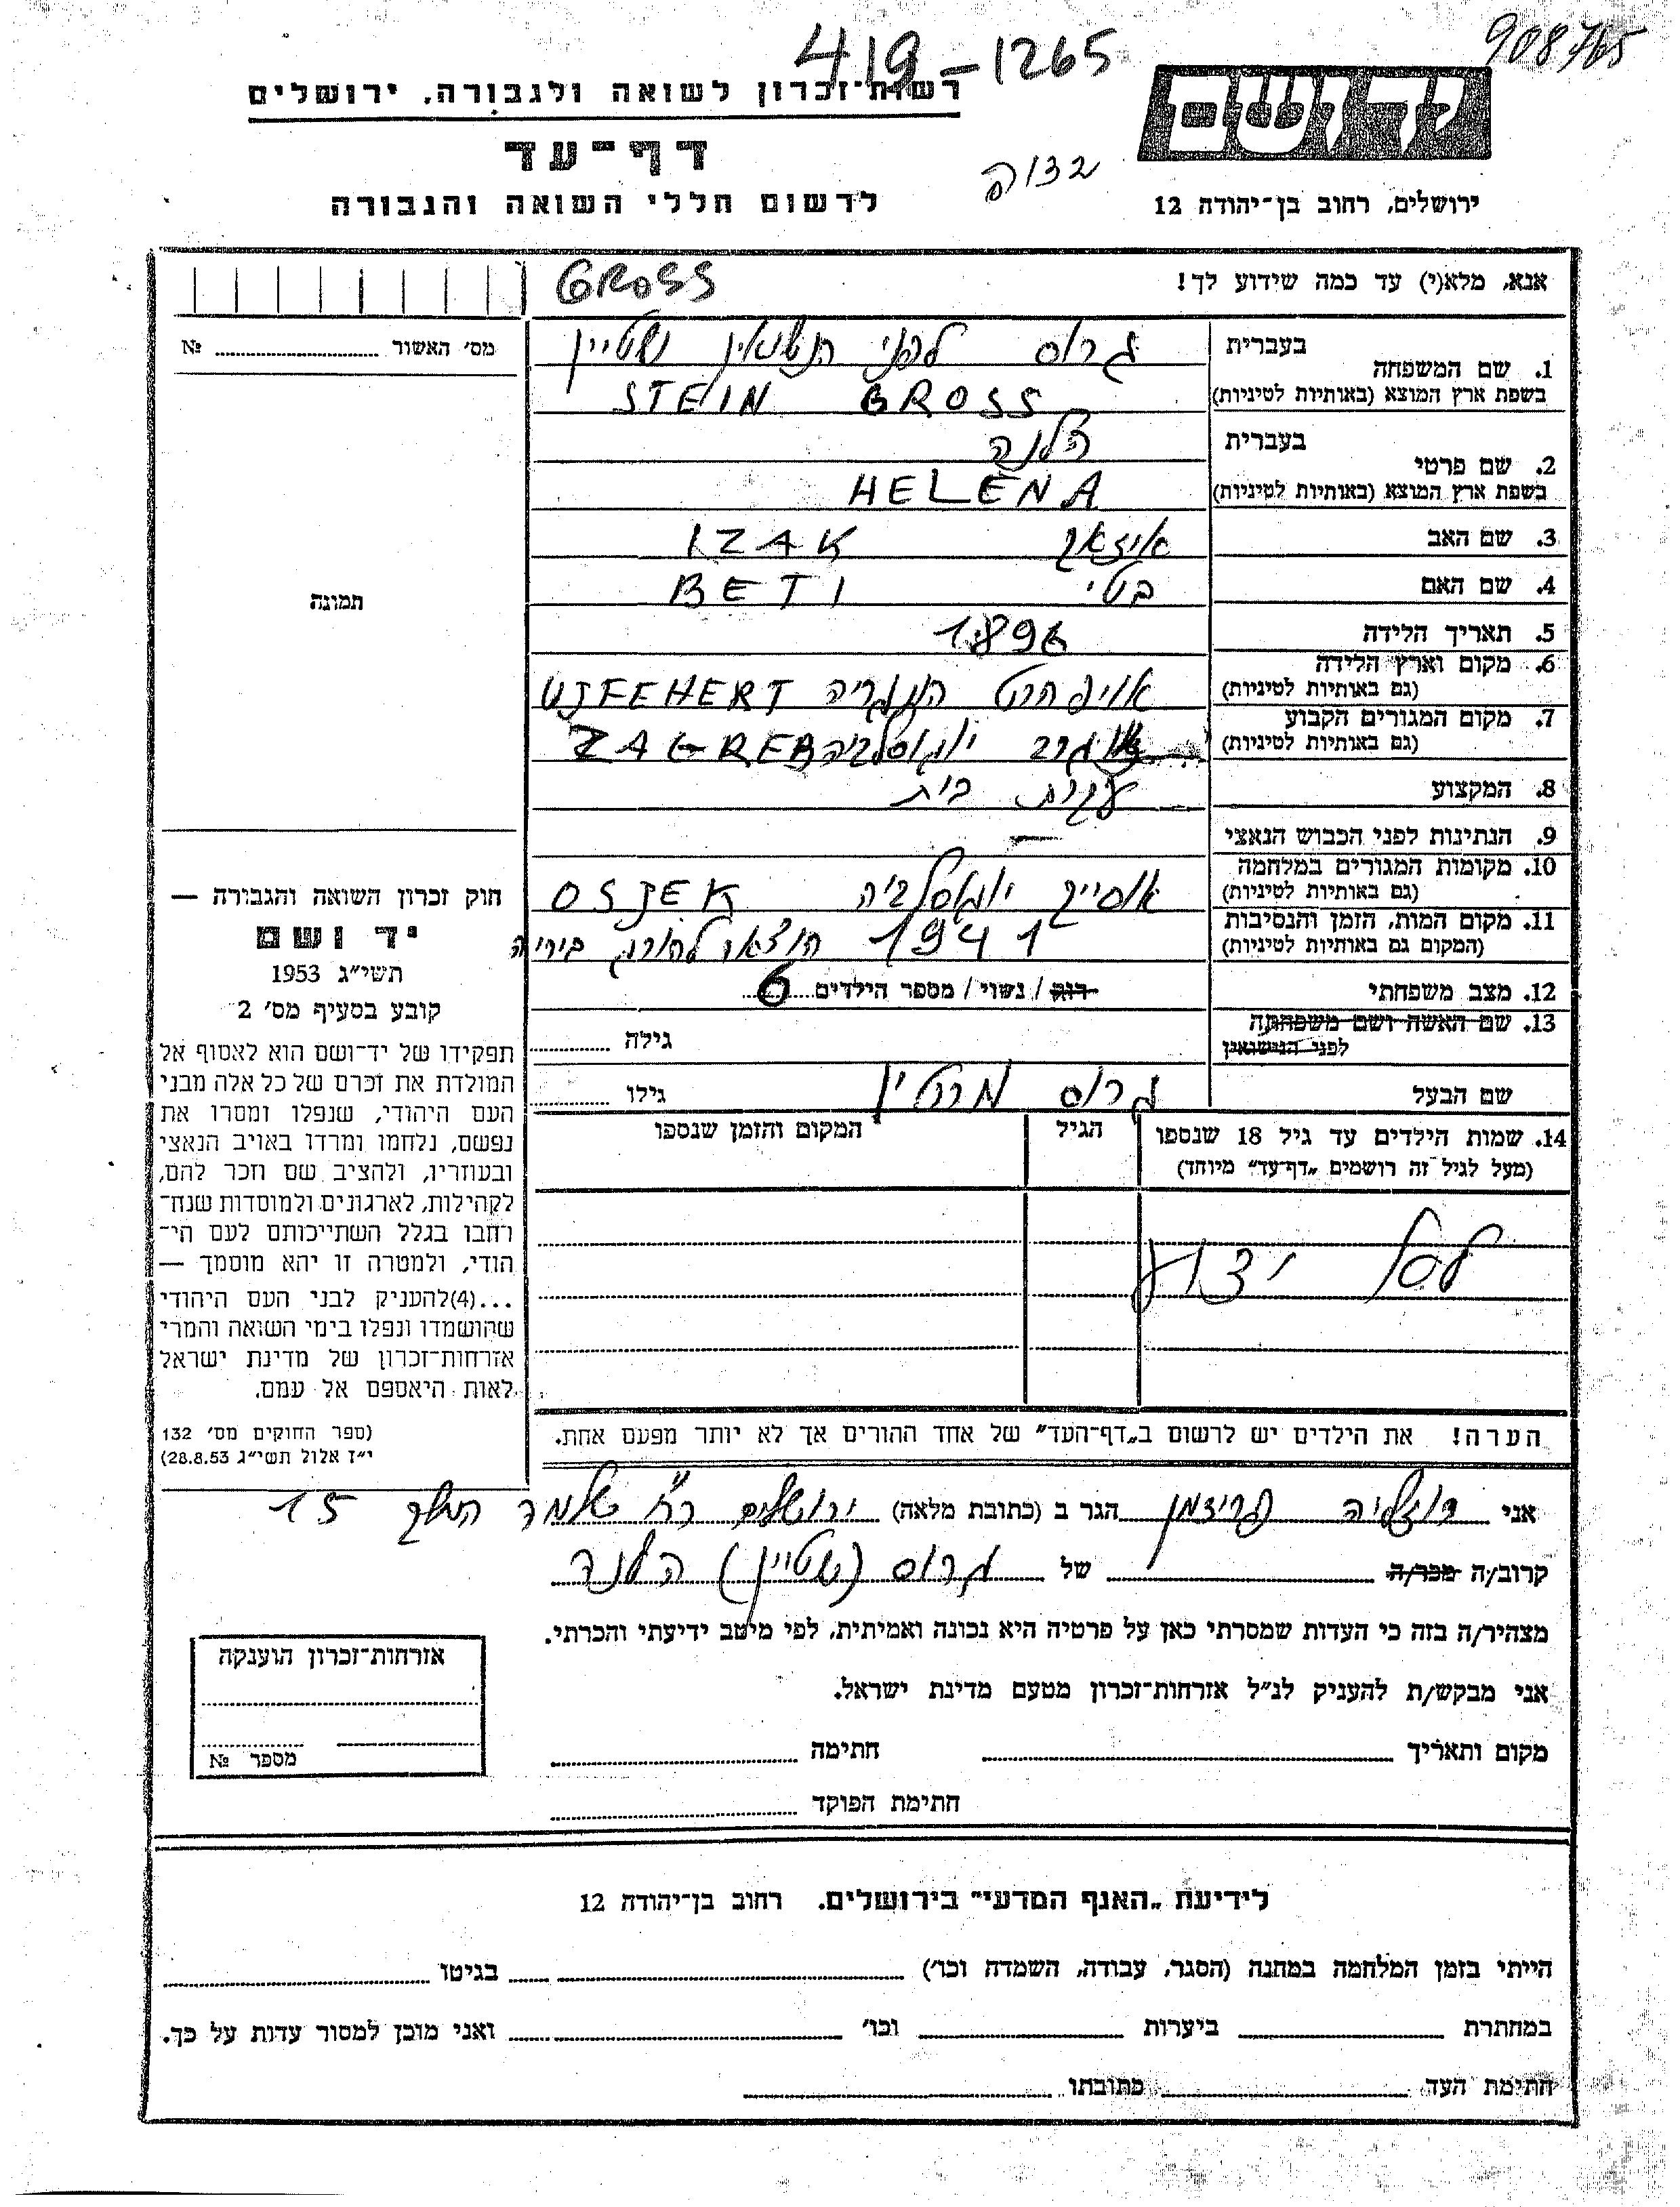 419-1265
908765
רשות־זכרון לשואה ולגבורה, ירושלים
יד ושם
דף־עד
לרשום חללי השואה והגבורה
ירושלים, רחוב בן־יהודה 12
אנא, מלא(י) עד כמה שידוע לך!
GROSS
מס׳ האשור № 
בעברית גרוס לפני הנשואין שטיין
1. שם המשפחה
בשפת ארץ המוצא (באותיות לטיניות) STEIN GROSS
בעברית הלנה
2. שם פרטי
בשפת ארץ המוצא (באותיות לטיניות) HELENA
3. שם האב איזאק IZAK
4. שם האם בטי BETI
תמונה
5. תאריך הלידה 1896
6. מקום וארץ הלידה
(גם באותיות לטיניות) אויפהרט הונגריה UJFEHERT
7. מקום המגורים הקבוע
(גם באותיות לטיניות) זאגרב יוגוסלביה ZAGREB
8. המקצוע עקרת בית
9. הנתינות לפני הכבוש הנאצי —
10. מקומות המגורים במלחמה
(גם באותיות לטיניות) אוסייק יוגוסלביה OSJEK
11. מקום המות, הזמן והנסיבות
(המקום גם באותיות לטיניות) 1941 הוצאו להורג ביריה
12. מצב משפחתי רוק / נשוי / מספר הילדים 6
13. שם האשה ושם משפחתה
לפני הנישואין גילה
שם הבעל גרוס מרטין גילו
14. שמות הילדים עד גיל 18 שנספו הגיל המקום והזמן שנספו
(מעל לגיל זה רושמים „דף־עד״ מיוחד)
לא ידוע
הערה! את הילדים יש לרשום ב„דף־העד״ של אחד ההורים אך לא יותר מפעם אחת.
חוק זכרון השואה והגבורה —
יד ושם
תשי״ג 1953
קובע בסעיף מס׳ 2
תפקידו של יד־ושם הוא לאסוף אל
המולדת את זכרם של כל אלה מבני
העם היהודי, שנפלו ומסרו את
נפשם, נלחמו ומרדו באויב הנאצי
ובעוזריו, ולהציב שם וזכר להם,
לקהילות, לארגונים ולמוסדות שנח־
רחבו בגלל השתייכותם לעם הי־
הודי, ולמטרה זו יהא מוסמך —
...(4)להעניק לבני העם היהודי
שהושמדו ונפלו בימי השואה והמרי
אזרחות־זכרון של מדינת ישראל
לאות היאספם אל עמם.
(ספר החוקים מס׳ 132
י״ז אלול תשי״ג 28.8.53)
אני רוזליה פרידמן הגר ב (כתובת מלאה) ירושלים רח׳ שלמה המלך 15
קרוב/ה מכר/ה של גרוס (שטיין) הלנה
מצהיר/ה בזה כי העדות שמסרתי כאן על פרטיה היא נכונה ואמיתית, לפי מיטב ידיעתי והכרתי.
אני מבקש/ת להעניק לנ״ל אזרחות־זכרון מטעם מדינת ישראל.
מקום ותאריך חתימה
חתימת הפוקד
אזרחות־זכרון הוענקה
מספר №
לידיעת „האגף המדעי״ בירושלים. רחוב בן־יהודה 12
הייתי בזמן המלחמה במחנה (הסגר, עבודה, השמדה וכו׳) בגיטו
במחתרת ביערות וכו׳ ואני מוכן למסור עדות על כך.
חתימת העד כתובתו